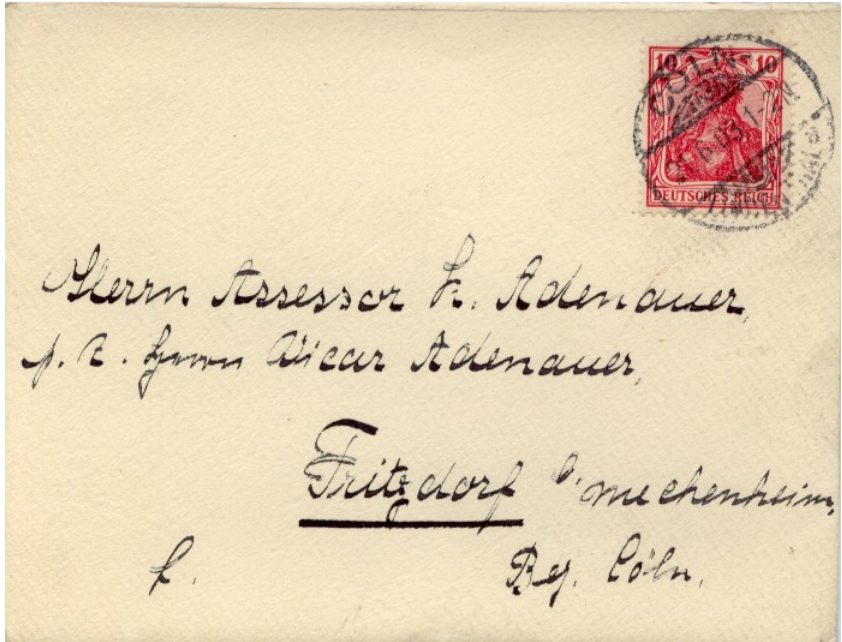 10 10
CÖLN
DEUTSCHES REICH
Herrn Assessor K. Adenauer,
p. A. Herrn Vicar Adenauer,
Fritzdorf b/ Meckenheim,
Bez. Cöln.